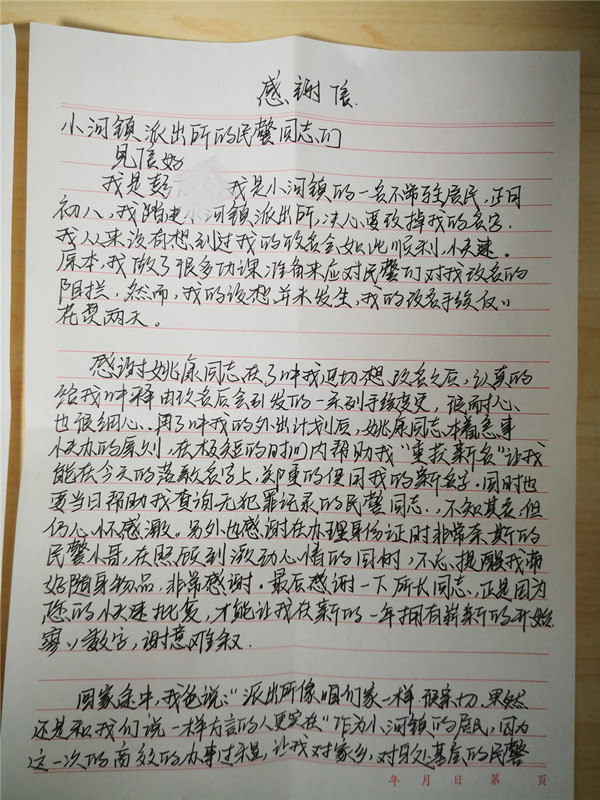 感谢信
小河镇派出所的民警同志们
见信好
我是彭 我是小河镇的一名不常驻居民,正月
初八,我踏进小河镇派出所,决心要改掉我的名字.
我从来没有想到过我的改名会如此顺利,快速。
原本,我做了很多功课准备来应对民警们对我改名的
阻拦,然而,我的设想并未发生,我的改名手续仅仅
花费两天。
感谢姚康同志,在了解我迫切想改名之后,认真的
给我解释由改名后会引发的一系列手续变更,很耐心、
也很细心.用了解我的外出计划后,姚康同志本着急事
快办的原则,在极短的时间内帮助我“重获新名”让我
能在今天的落款名字上,郑重的使用我的新名字.同时也
要当日帮助我查询无犯罪记录的民警同志.,不知其名,但
仍心怀感激。另外也感谢在办理身份证时非常亲斯的
民警小哥,在照顾到激动心情的同时,不忘提醒我带
好随身物品,非常感谢.最后感谢一下所长同志,正是因为
您的快速批复,才能让我在新的一年拥有崭新的开始.
寥寥数字,谢意难叙.
回家途中,我爸说:“派出所像咱们家一样 很亲切.果然
还是和我们说一样方言的人更实在”作为小河镇的居民,因为
这一次的高效的办事过程,让我对家乡,对身处基层的民警
年 月 日 第 頁